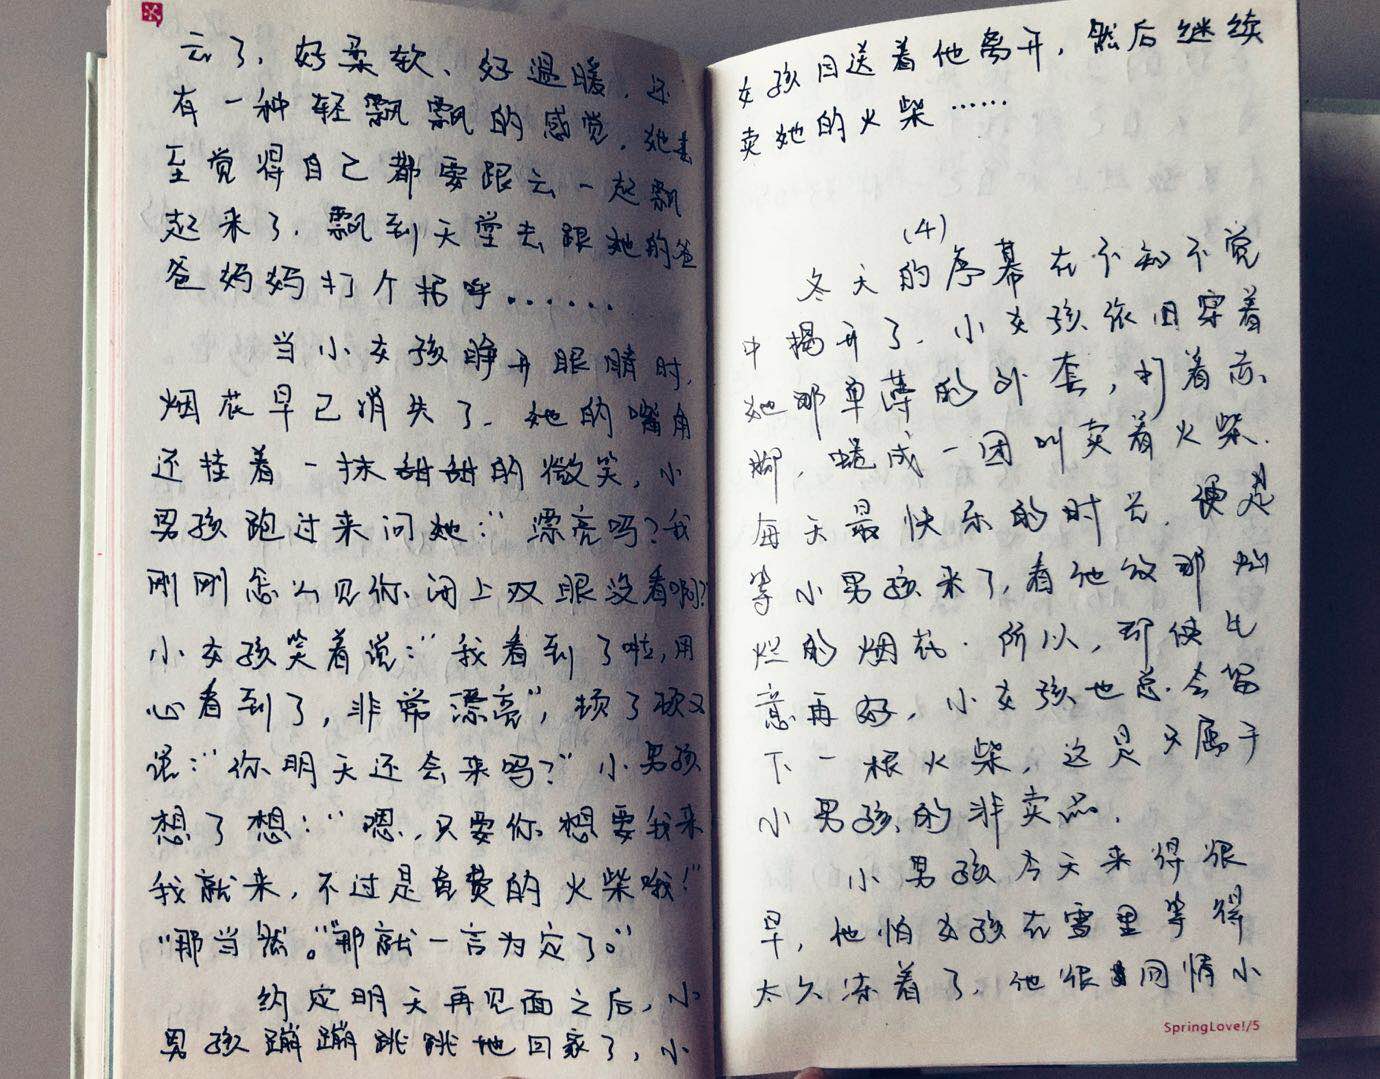 云了，好柔软、好温暖，还
有一种轻飘飘的感觉，她甚
至觉得自己都要跟云一起飘
起来了，飘到天堂去跟她的爸
爸妈妈打个招呼......
当小女孩睁开眼睛时，
烟花早已消失了，她的嘴角
还挂着一抹甜甜的微笑，小
男孩跑过来问她："漂亮吗？我
刚刚怎么见你闭上双眼没看啊？"
小女孩笑着说："我看到了啦，用
心看到了，非常漂亮"，顿了顿又
说："你明天还会来吗？"小男孩
想了想："嗯，只要你想要我来
我就来，不过是免费的火柴哦！"
"那当然。""那就一言为定了。"
约定明天再见面之后，小
男孩蹦蹦跳跳地回家了，小
女孩目送着他离开，然后继续
卖她的火柴……
(4)
冬天的序幕在不知不觉
中揭开了，小女孩依旧穿着
她那单薄的外套，打着赤
脚，蜷成一团叫卖着火柴.
每天最快乐的时光，便是
等小男孩来了，看他放那灿
烂的烟花. 所以，即使生
意再好，小女孩也总会留
下一根火柴，这是只属于
小男孩的非卖品.
小男孩今天来得很
早，他怕女孩在雪里等得
太久冻着了，他很同情小
SpringLove!/5